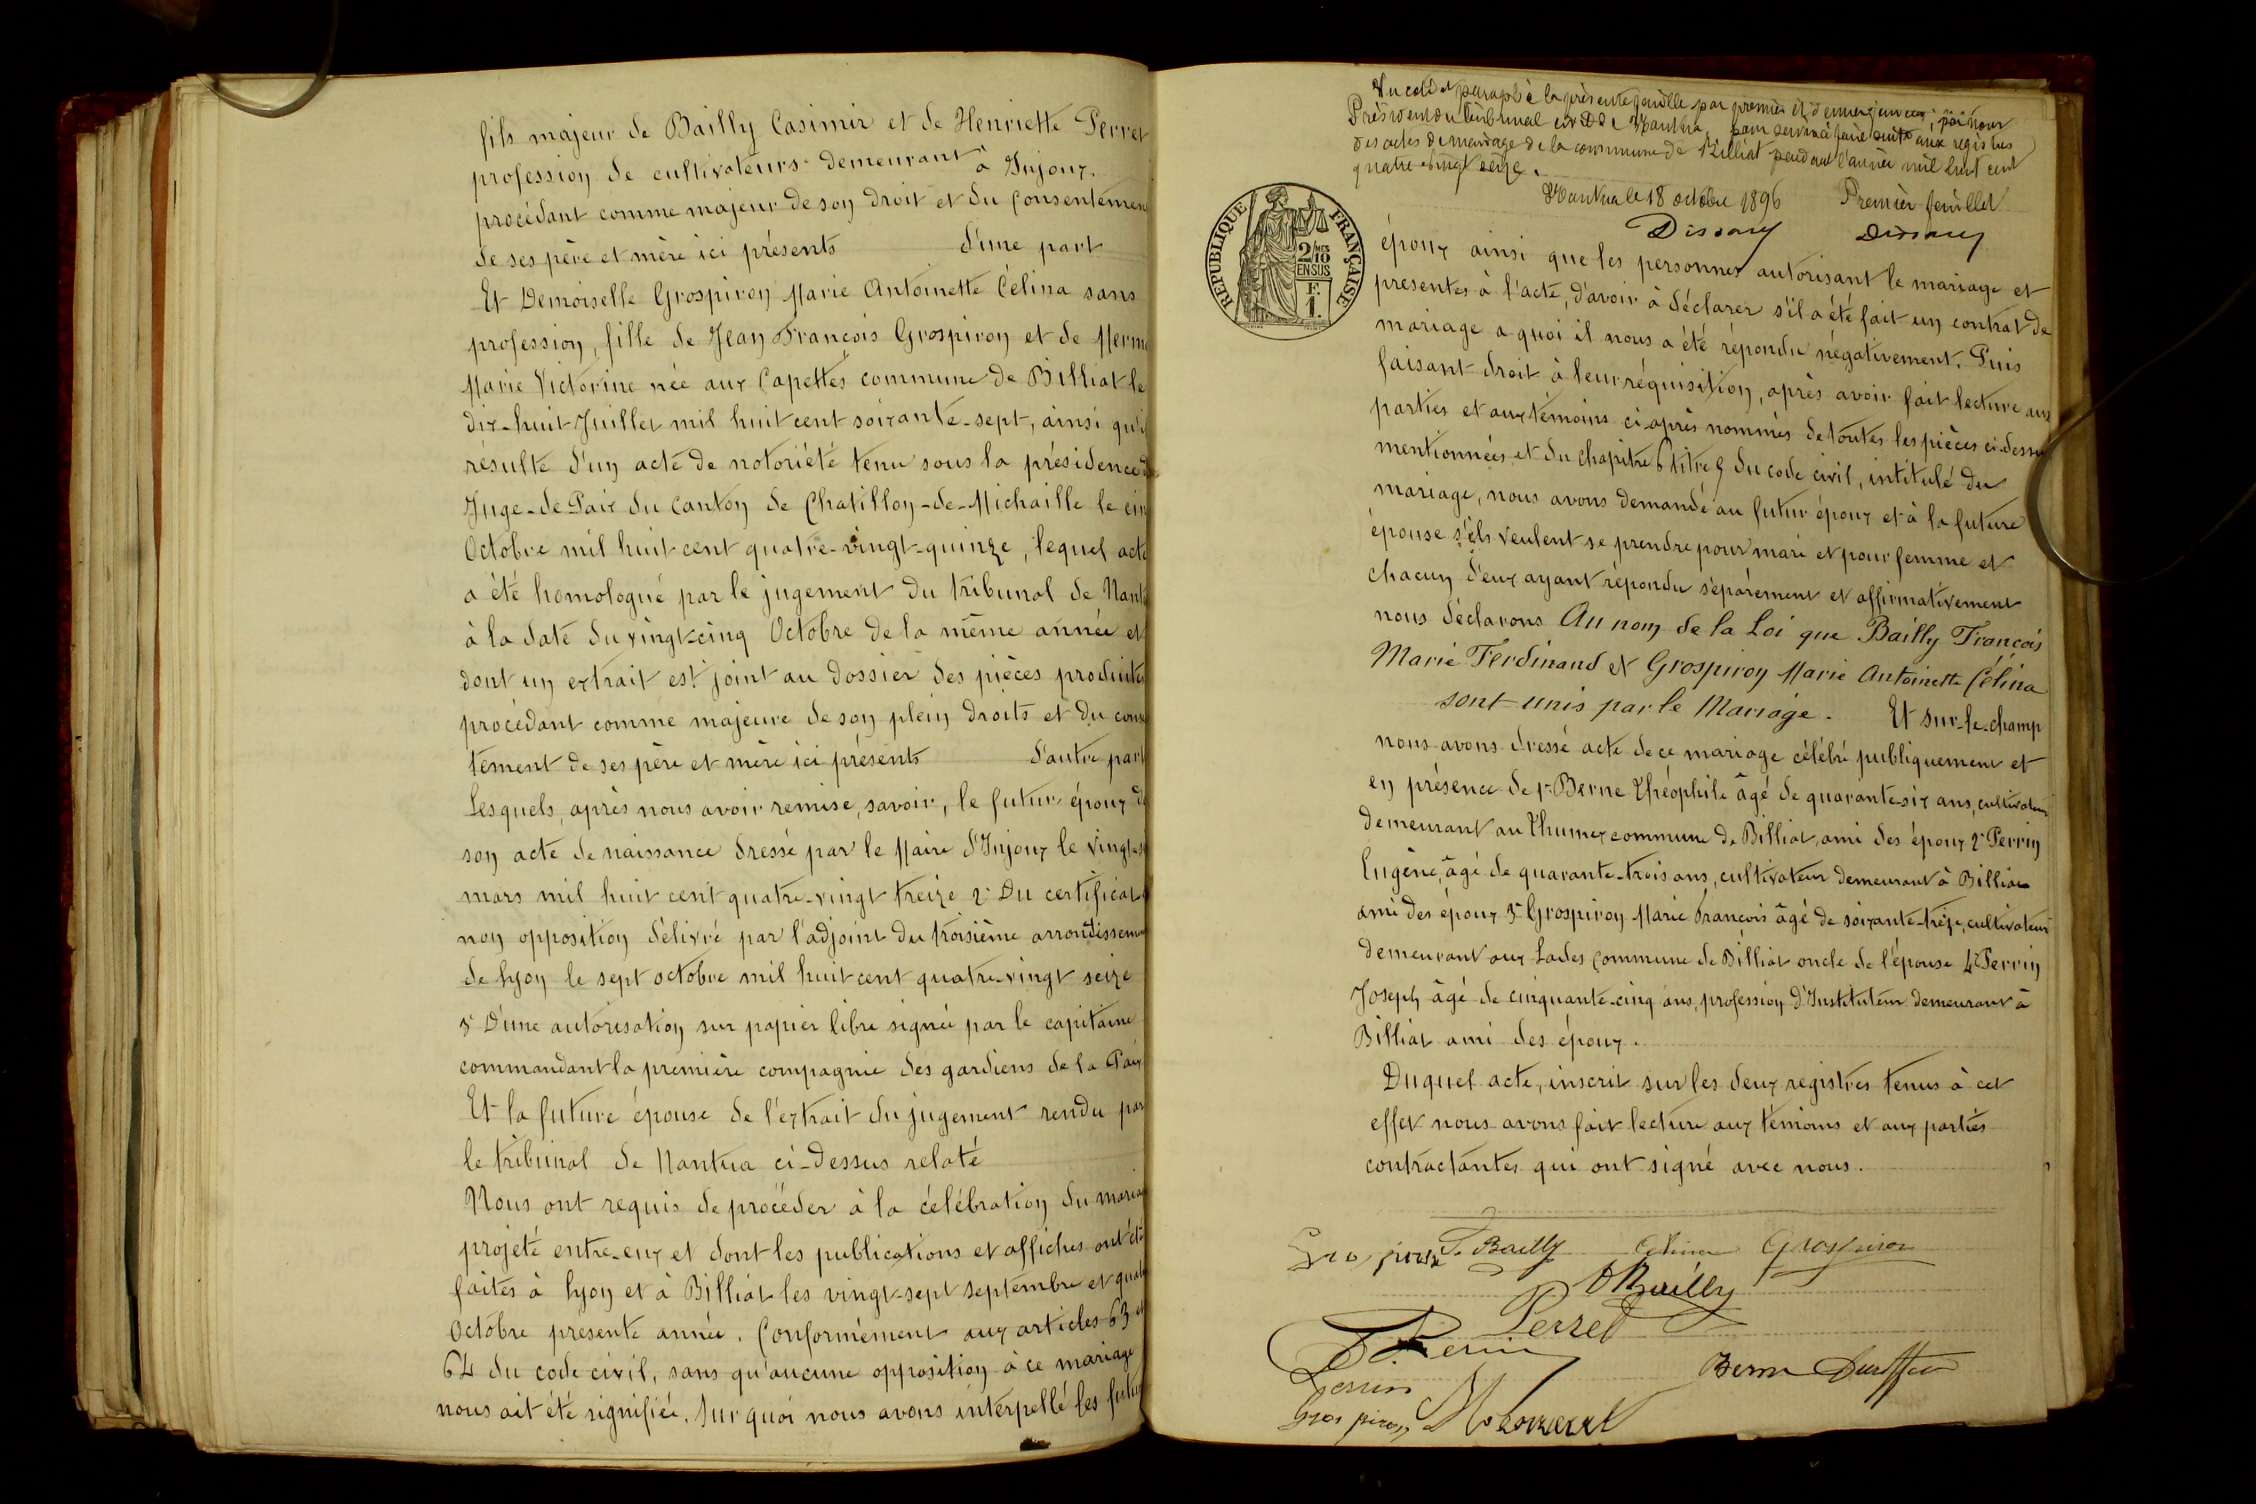 fils majeur de Bailly Casimir et de Henriette Perret
profession de cultivateurs demeurant à Injoux.
procédant comme majeur de son droit et du consentemen
de ses père et mère ici présents d'une part
Et Demoiselle Grospiron Marie Antoinette Célina sans
profession, fille de Jean François Grospiron et de Merm
Marie Victorine née aux Capettes commune de Billiat le
dix-huit Juillet mil huit cent soixante-sept, ainsi qu'i
résulte d'un acte de notoriété tenu sous la présidence d
Juge-de-Paix du Canton de Chatillon-de-Michaille le cin
Octobre mil huit cent quatre-vingt-quinze, lequel acte
a été homologué par le jugement du tribunal de Nant
à la date du vingt-cinq Octobre de la même année et
dont un extrait est joint au dossier des pièces produites
procédant comme majeure de son plein droits et du cons
tement de ses père et mère ici présents d'autre part
Lesquels, après nous avoir remise, savoir, le futur époux d
son acte de naissance dressé par le Maire d'Injoux le vingt-s
mars mil huit cent quatre-vingt treize 2° Du certificat
non opposition délivré par l'adjoint du troisième arrondissem
de Lyon le sept octobre mil huit cent quatre-vingt seize
3° D'une autorisation sur papier libre signée par le capitaine
commandant la première compagnie des gardiens de la Paix
Et la future épouse de l'extrait du jugement rendu par
le tribunal de Nantua ci-dessus relaté
Nous ont requis de procéder à la célébration du mariag
projeté entre-eux et dont les publications et affiches ont été
faites à Lyon et à Billiat les vingt-sept septembre et quat
Octobre présente année. Conformément aux articles 63 et
64 du code civil, sans qu'aucune opposition à ce mariage
nous ait été signifiée. Sur quoi nous avons interpellé les futur
Vu coté et paraphé la présente feuille par premier et dernier par nous
Président du Tribunal civil de Nantua, pour servir à faire suite aux registres
des actes de mariage de la commune de Billiat pendant l'année mil huit cent
quatre-vingt seize.
Nantua le 18 octobre 1896 Premier feuillet
RÉPUBLIQUE FRANÇAISE
2/10 MES
EN SUS
F.
1.
époux ainsi que les personnes autorisant le mariage et
présentes à l'acte, d'avoir à déclarer s'il a été fait un contrat de
mariage a quoi il nous a été répondu négativement. Puis
faisant droit à leur réquisition, après avoir fait lecture aux
parties et aux témoins ci-après nommés de toutes les pièces ci-dessus
mentionnées et du chapitre 6 titre 5 du code civil, intitulé du
mariage, nous avons demandé au futur époux et à la future
épouse s'ils veulent se prendre pour mari et pour femme et
chacun d'eux ayant répondu séparément et affirmativement
nous déclarons Au nom de la Loi que Bailly François
Marie Ferdinand et Grospiron Marie Antoinette Célina
sont unis par le Mariage. Et sur-le-champ
nous avons dressé acte de ce mariage célébré publiquement et
en présence de 1° Berne Théophile âgé de quarante-six ans, cultivateur
demeurant au Thumex commune de Billiat, ami des époux 2° Perrin
Eugène, âgé de quarante-trois ans, cultivateur demeurant à Billiat
ami des époux 3° Grospiron Marie François âgé de soixante-treize, cultivateur
demeurant aux Lades commune de Billiat oncle de l'épouse 4° Perrin
Joseph âgé de cinquante-cinq ans, profession d'Instituteur demeurant à
Billiat ami des époux.
Duquel acte, inscrit sur les deux registres tenus à cet
effet nous avons fait lecture aux témoins et aux parties
contractantes qui ont signé avec nous.
F. Bailly Célina Grospiron
Bailly
Perret
Perrin
Berne
Perrin
Gros piron